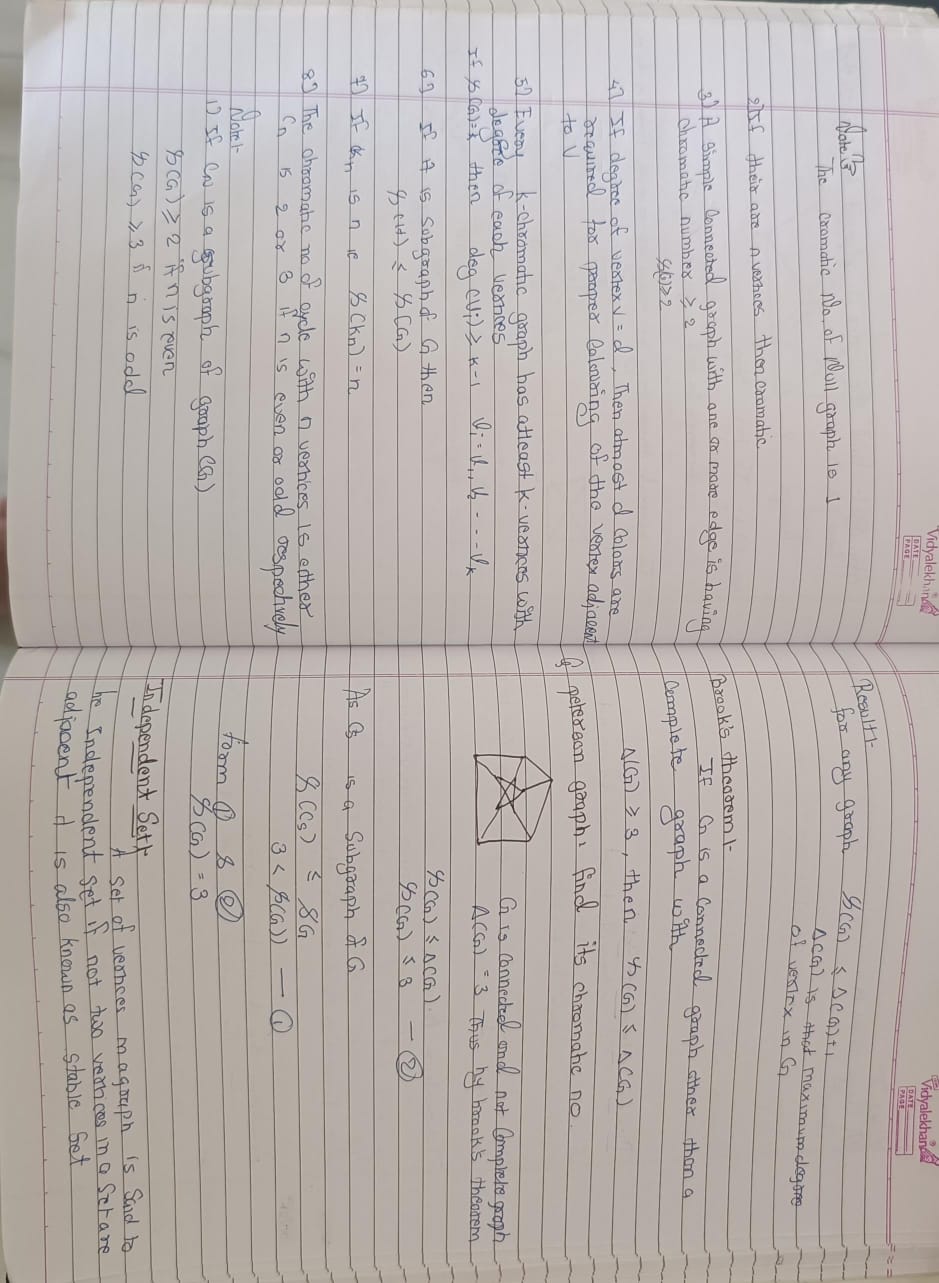 Vidyalekhan
DATE
PAGE
Note :
The cromatic No. of Null graph is 1
2) If their are n vertices then cromatic
3) A simple Connected graph with one or more edge is having
chromatic number ≥ 2
γ(G) ≥ 2
4) If degree of vertex v = d, Then atmost d Colors are
required for proper Colouring of the vertex adjacent
to V
5) Every k-chromatic graph has atleast k-vertices with
degree of each vertices
If γ(G)=k then deg(Vi) ≥ k-1 Vi = V1, V2 ---- Vk
6) If H is Subgraph of G then
γ(H) ≤ γ(G)
7) If Kn is n ie γ(Kn) = n
8) The chromatic no of cycle with n vertices is either
Cn is 2 or 3 if n is even or odd respectively
Note:-
1) If CN is a subgraph of graph (G)
γ(G) ≥ 2 if n is even
γ(G) ≥ 3 if n is odd
Vidyalekhan
DATE
PAGE
Result:-
for any graph γ(G) ≤ Δ(G)+1
Δ(G) is that maximum degree
of vertex in G
Brook's theorem:-
If G is a Connected graph other than a
Complete graph with
Δ(G) ≥ 3, then γ(G) ≤ Δ(G)
Q peterson graph: find its chromatic no.
G is Connected and not Complete graph
Δ(G) = 3 Thus by brook's theorem
γ(G) ≤ Δ(G)
γ(G) ≤ 3 — ②
As C5 is a Subgraph of G
γ(C5) ≤ γG
3 < γ(G)) — ①
form ① & ②
γ(G) = 3
Independent Set:-
A set of vertices in a graph is Said to
be Independent set if not two vertices in a Set are
adjacent it is also known as stable Set